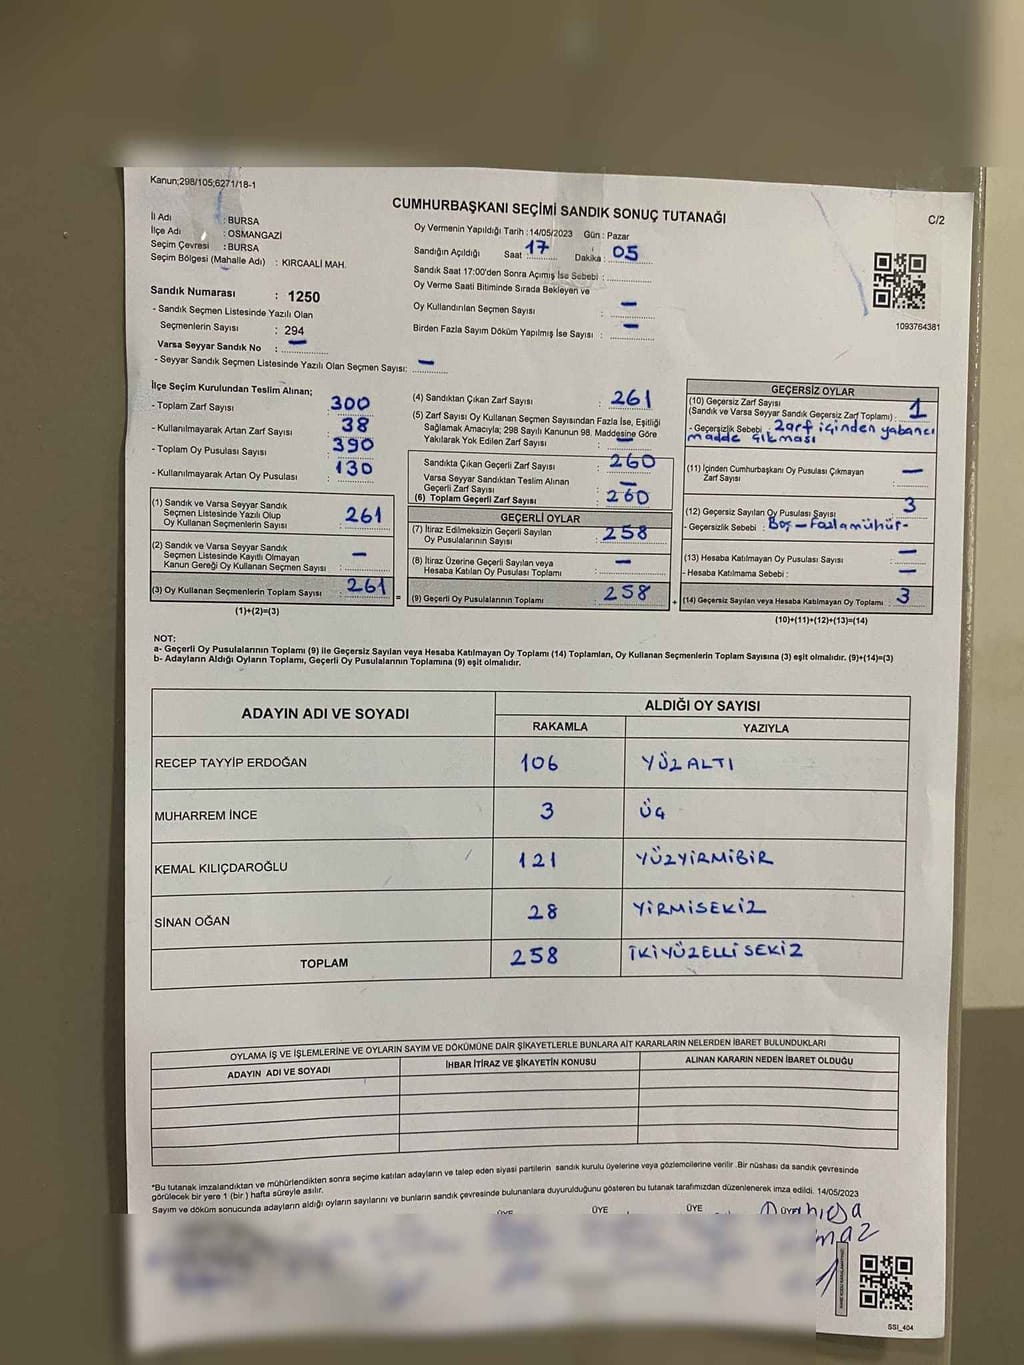 Kanun;298/105;6271/18-1
CUMHURBAŞKANI SEÇİMİ SANDIK SONUÇ TUTANAĞI
C/2
İl Adı : BURSA
İlçe Adı : OSMANGAZİ
Seçim Çevresi : BURSA
Seçim Bölgesi (Mahalle Adı) : KIRCAALİ MAH.
Sandık Numarası : 1250
- Sandık Seçmen Listesinde Yazılı Olan
Seçmenlerin Sayısı : 294
Varsa Seyyar Sandık No : —
- Seyyar Sandık Seçmen Listesinde Yazılı Olan Seçmen Sayısı: —
Oy Vermenin Yapıldığı Tarih : 14/05/2023 Gün : Pazar
Sandığın Açıldığı Saat : 17 Dakika : 05
Sandık Saat 17:00'den Sonra Açımış İse Sebebi :
Oy Verme Saati Bitiminde Sırada Bekleyen ve
Oy Kullandırılan Seçmen Sayısı : —
Birden Fazla Sayım Döküm Yapılmış İse Sayısı : —
1093764381
İlçe Seçim Kurulundan Teslim Alınan;
- Toplam Zarf Sayısı : 300
- Kullanılmayarak Artan Zarf Sayısı : 38
- Toplam Oy Pusulası Sayısı : 390
- Kullanılmayarak Artan Oy Pusulası : 130
(1) Sandık ve Varsa Seyyar Sandık
Seçmen Listesinde Yazılı Olup
Oy Kullanan Seçmenlerin Sayısı : 261
(2) Sandık ve Varsa Seyyar Sandık
Seçmen Listesinde Kayıtlı Olmayan
Kanun Gereği Oy Kullanan Seçmen Sayısı : —
(3) Oy Kullanan Seçmenlerin Toplam Sayısı : 261
(1)+(2)=(3)
=
(4) Sandıktan Çıkan Zarf Sayısı : 261
(5) Zarf Sayısı Oy Kullanan Seçmen Sayısından Fazla İse, Eşitliği
Sağlamak Amacıyla; 298 Sayılı Kanunun 98. Maddesine Göre
Yakılarak Yok Edilen Zarf Sayısı : —
Sandıkta Çıkan Geçerli Zarf Sayısı : 260
Varsa Seyyar Sandıktan Teslim Alınan
Geçerli Zarf Sayısı : —
(6) Toplam Geçerli Zarf Sayısı : 260
GEÇERLİ OYLAR
(7) İtiraz Edilmeksizin Geçerli Sayılan
Oy Pusulalarının Sayısı : 258
(8) İtiraz Üzerine Geçerli Sayılan veya
Hesaba Katılan Oy Pusulası Toplamı : —
(9) Geçerli Oy Pusulalarının Toplamı : 258
+
GEÇERSİZ OYLAR
(10) Geçersiz Zarf Sayısı
(Sandık ve Varsa Seyyar Sandık Geçersiz Zarf Toplamı) : 1
- Geçersizlik Sebebi : Zarf içinden yabancı
madde çıkması
(11) İçinden Cumhurbaşkanı Oy Pusulası Çıkmayan
Zarf Sayısı : —
(12) Geçersiz Sayılan Oy Pusulası Sayısı : 3
- Geçersizlik Sebebi : Boş - Fazlamühür-
(13) Hesaba Katılmayan Oy Pusulası Sayısı : —
- Hesaba Katılmama Sebebi : —
(14) Geçersiz Sayılan veya Hesaba Katılmayan Oy Toplamı : 3
(10)+(11)+(12)+(13)=(14)
NOT:
a- Geçerli Oy Pusulalarının Toplamı (9) ile Geçersiz Sayılan veya Hesaba Katılmayan Oy Toplamı (14) Toplamları, Oy Kullanan Seçmenlerin Toplam Sayısına (3) eşit olmalıdır. (9)+(14)=(3)
b- Adayların Aldığı Oyların Toplamı, Geçerli Oy Pusulalarının Toplamına (9) eşit olmalıdır.
ADAYIN ADI VE SOYADI ALDIĞI OY SAYISI
RAKAMLA YAZIYLA
RECEP TAYYİP ERDOĞAN 106 YÜZALTI
MUHARREM İNCE 3 ÜÇ
KEMAL KILIÇDAROĞLU 121 YÜZYİRMİBİR
SİNAN OĞAN 28 YİRMİSEKİZ
TOPLAM 258 İKİYÜZELLİSEKİZ
OYLAMA İŞ VE İŞLEMLERİNE VE OYLARIN SAYIM VE DÖKÜMÜNE DAİR ŞİKAYETLERLE BUNLARA AİT KARARLARIN NELERDEN İBARET BULUNDUKLARI
ADAYIN ADI VE SOYADI İHBAR İTİRAZ VE ŞİKAYETİN KONUSU ALINAN KARARIN NEDEN İBARET OLDUĞU
*Bu tutanak imzalandıktan ve mühürlendikten sonra seçime katılan adayların ve talep eden siyasi partilerin sandık kurulu üyelerine veya gözlemcilerine verilir .Bir nüshası da sandık çevresinde
görülecek bir yere 1 (bir ) hafta süreyle asılır.
Sayım ve döküm sonucunda adayların aldığı oyların sayılarını ve bunların sandık çevresinde bulunanlara duyurulduğunu gösteren bu tutanak tarafımızdan düzenlenerek imza edildi. 14/05/2023
ÜYE ÜYE ÜYE ÜYE
SSI_404